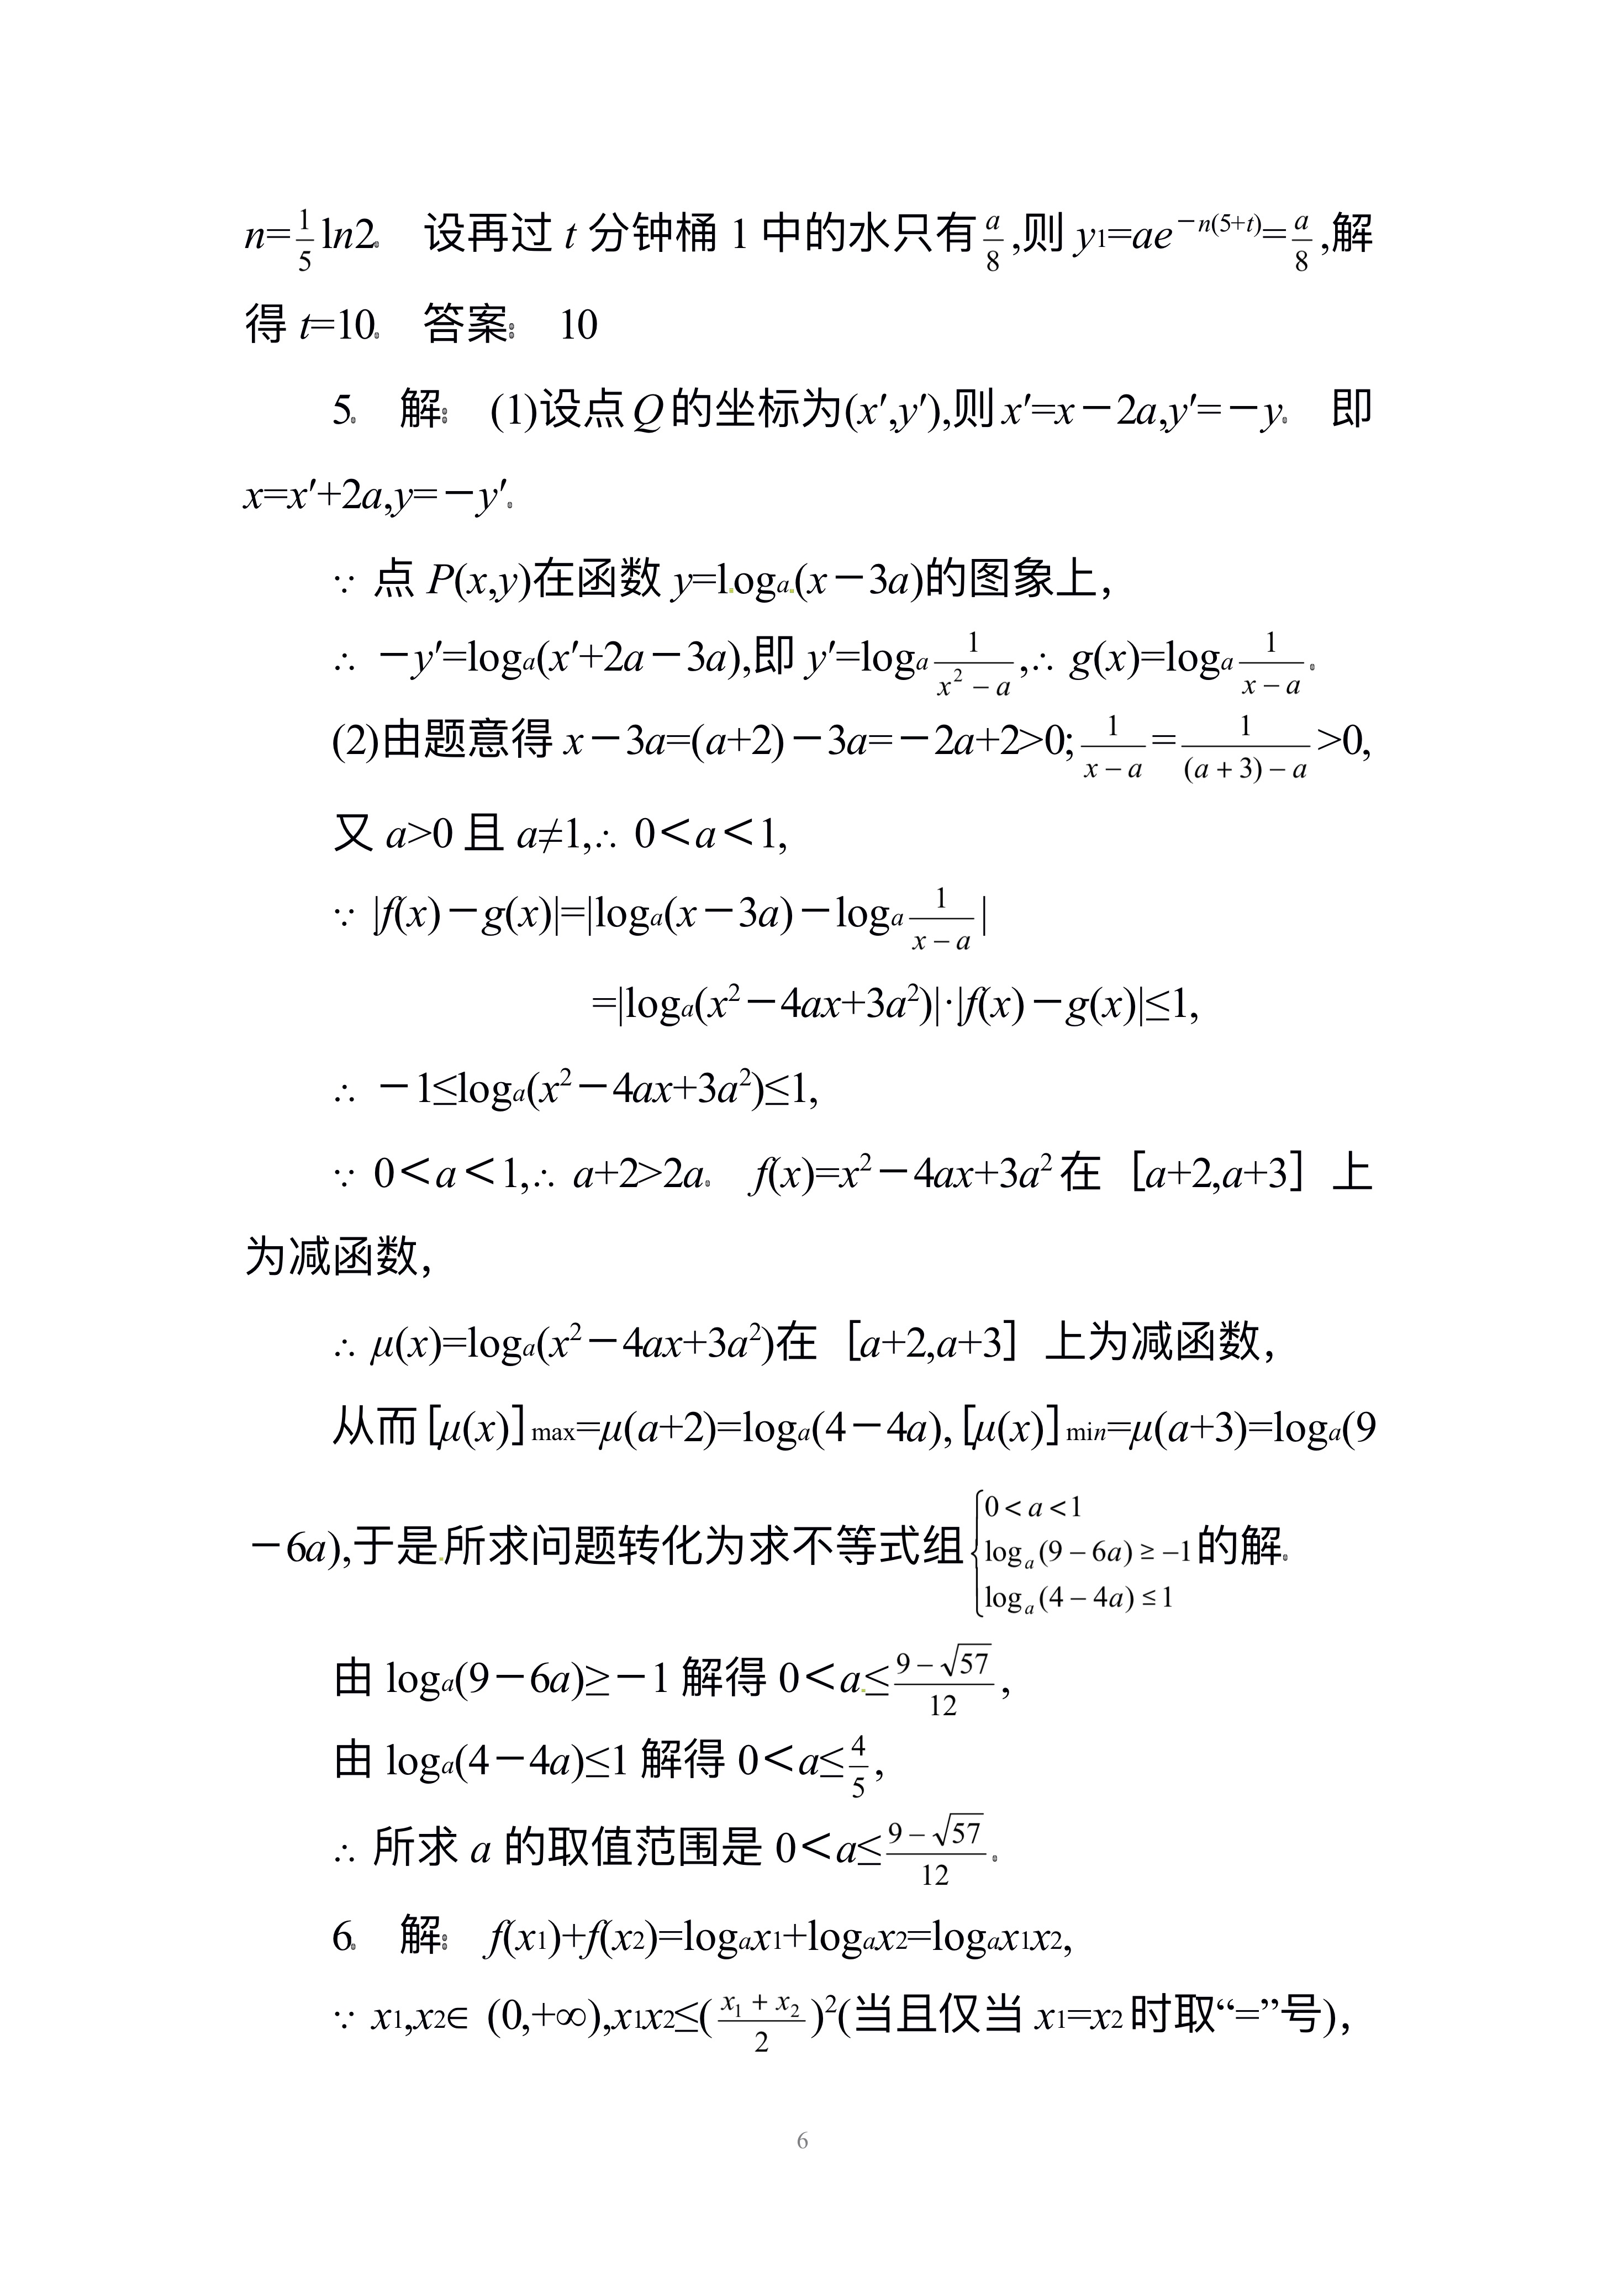 n=\frac{1}{5}ln2. 设再过 t 分钟桶 1 中的水只有\frac{a}{8},则 y₁=ae^{－n(5+t)}=\frac{a}{8},解
得 t=10. 答案: 10
5. 解: (1)设点 Q 的坐标为(x′,y′),则 x′=x－2a,y′=－y. 即
x=x′+2a,y=－y′.
∵ 点 P(x,y)在函数 y=logₐ(x－3a)的图象上,
∴ －y′=logₐ(x′+2a－3a),即 y′=logₐ\frac{1}{x²－a},∴ g(x)=logₐ\frac{1}{x－a}.
(2)由题意得 x－3a=(a+2)－3a=－2a+2>0;\frac{1}{x－a}=\frac{1}{(a+3)－a}>0,
又 a>0 且 a≠1,∴ 0＜a＜1,
∵ |f(x)－g(x)|=|logₐ(x－3a)－logₐ\frac{1}{x－a}|
=|logₐ(x²－4ax+3a²)|·|f(x)－g(x)|≤1,
∴ －1≤logₐ(x²－4ax+3a²)≤1,
∵ 0＜a＜1,∴ a+2>2a. f(x)=x²－4ax+3a² 在［a+2,a+3］上
为减函数,
∴ μ(x)=logₐ(x²－4ax+3a²)在［a+2,a+3］上为减函数,
从而［μ(x)］max=μ(a+2)=logₐ(4－4a),［μ(x)］min=μ(a+3)=logₐ(9
－6a),于是所求问题转化为求不等式组\begin{cases}0<a<1\\\log_a(9-6a)≥-1\\\log_a(4-4a)≤1\end{cases}的解.
由 logₐ(9－6a)≥－1 解得 0＜a≤\frac{9－\sqrt{57}}{12},
由 logₐ(4－4a)≤1 解得 0＜a≤\frac{4}{5},
∴ 所求 a 的取值范围是 0＜a≤\frac{9－\sqrt{57}}{12}.
6. 解: f(x₁)+f(x₂)=logₐx₁+logₐx₂=logₐx₁x₂,
∵ x₁,x₂∈ (0,+∞),x₁x₂≤(\frac{x₁+x₂}{2})²(当且仅当 x₁=x₂ 时取“=”号),
6